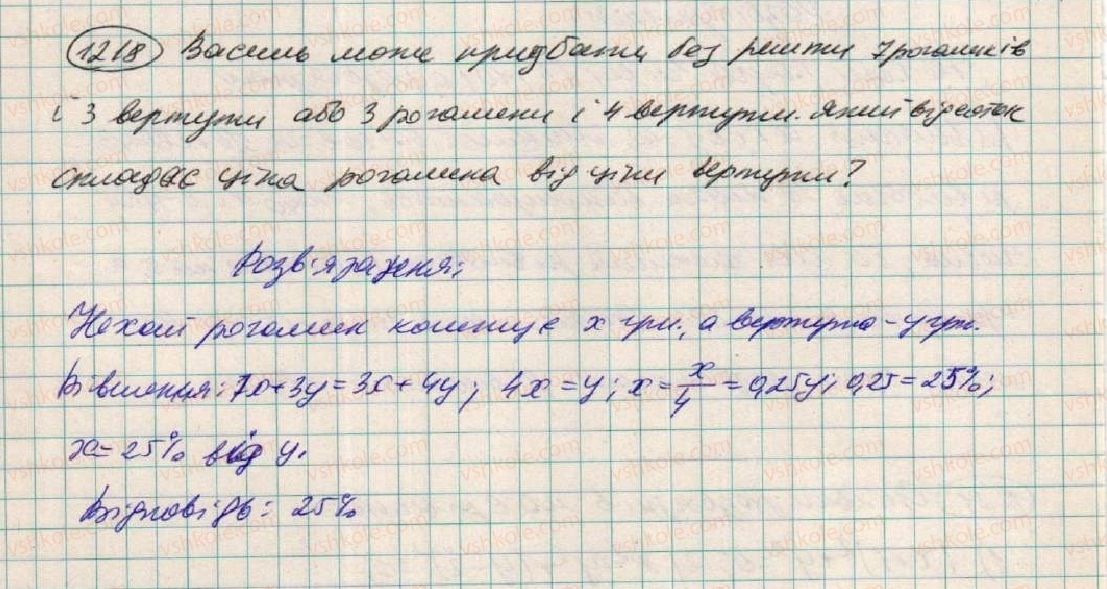 1218 Василь може придбати без решти 7 рогаликів
і 3 вертути або 3 рогалики і 4 вертути. Який відсоток
складає ціна рогалика від ціни вертути?
Розв'язання:
Нехай рогалик коштує x грн., а вертута - y грн.
Рівняння: 7x+3y=3x+4y; 4x=y; x=x/4=0,25y; 0,25=25%;
x=25% від y.
Відповідь: 25%